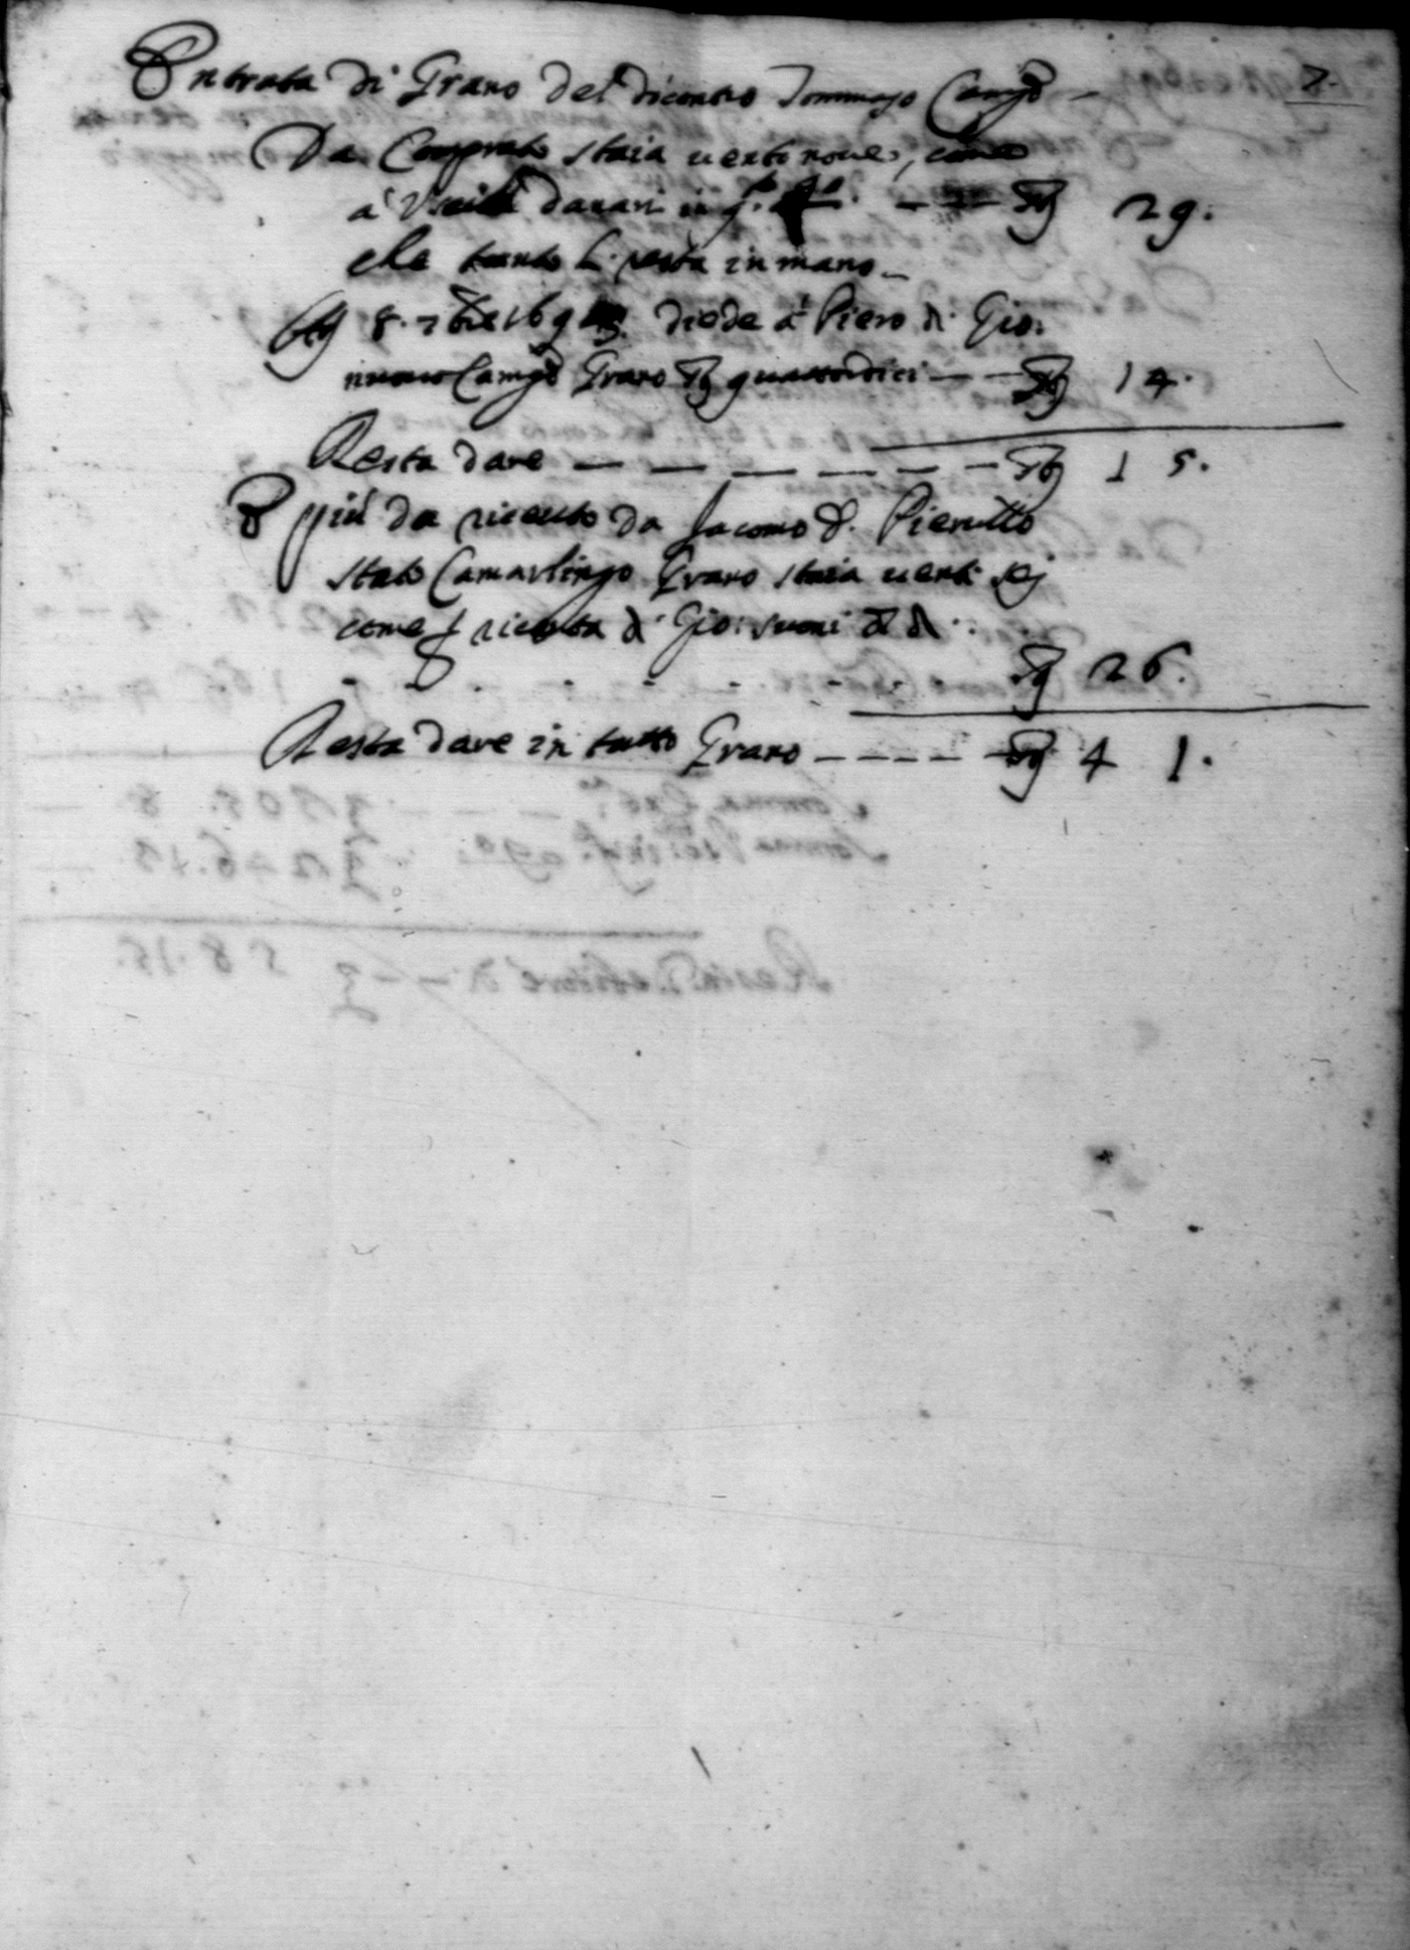 Entrata di Grano del dicontro Tommaso Camgo 7.
Da Comprato staia uentinoue, come
a Uscita danari in 29.
che tanto li resta in mano
8. 7bre 169 diede à Piero di Gio:
nuouo Camgo Grano quattordici 14.
Resta dare 15.
E più da riceuto da Jacomo d. Pierutto
stato Camarlingo Grano staia uenti sej
come riceuta di Gio:
26.
Resta dare in tutto Grano 41.